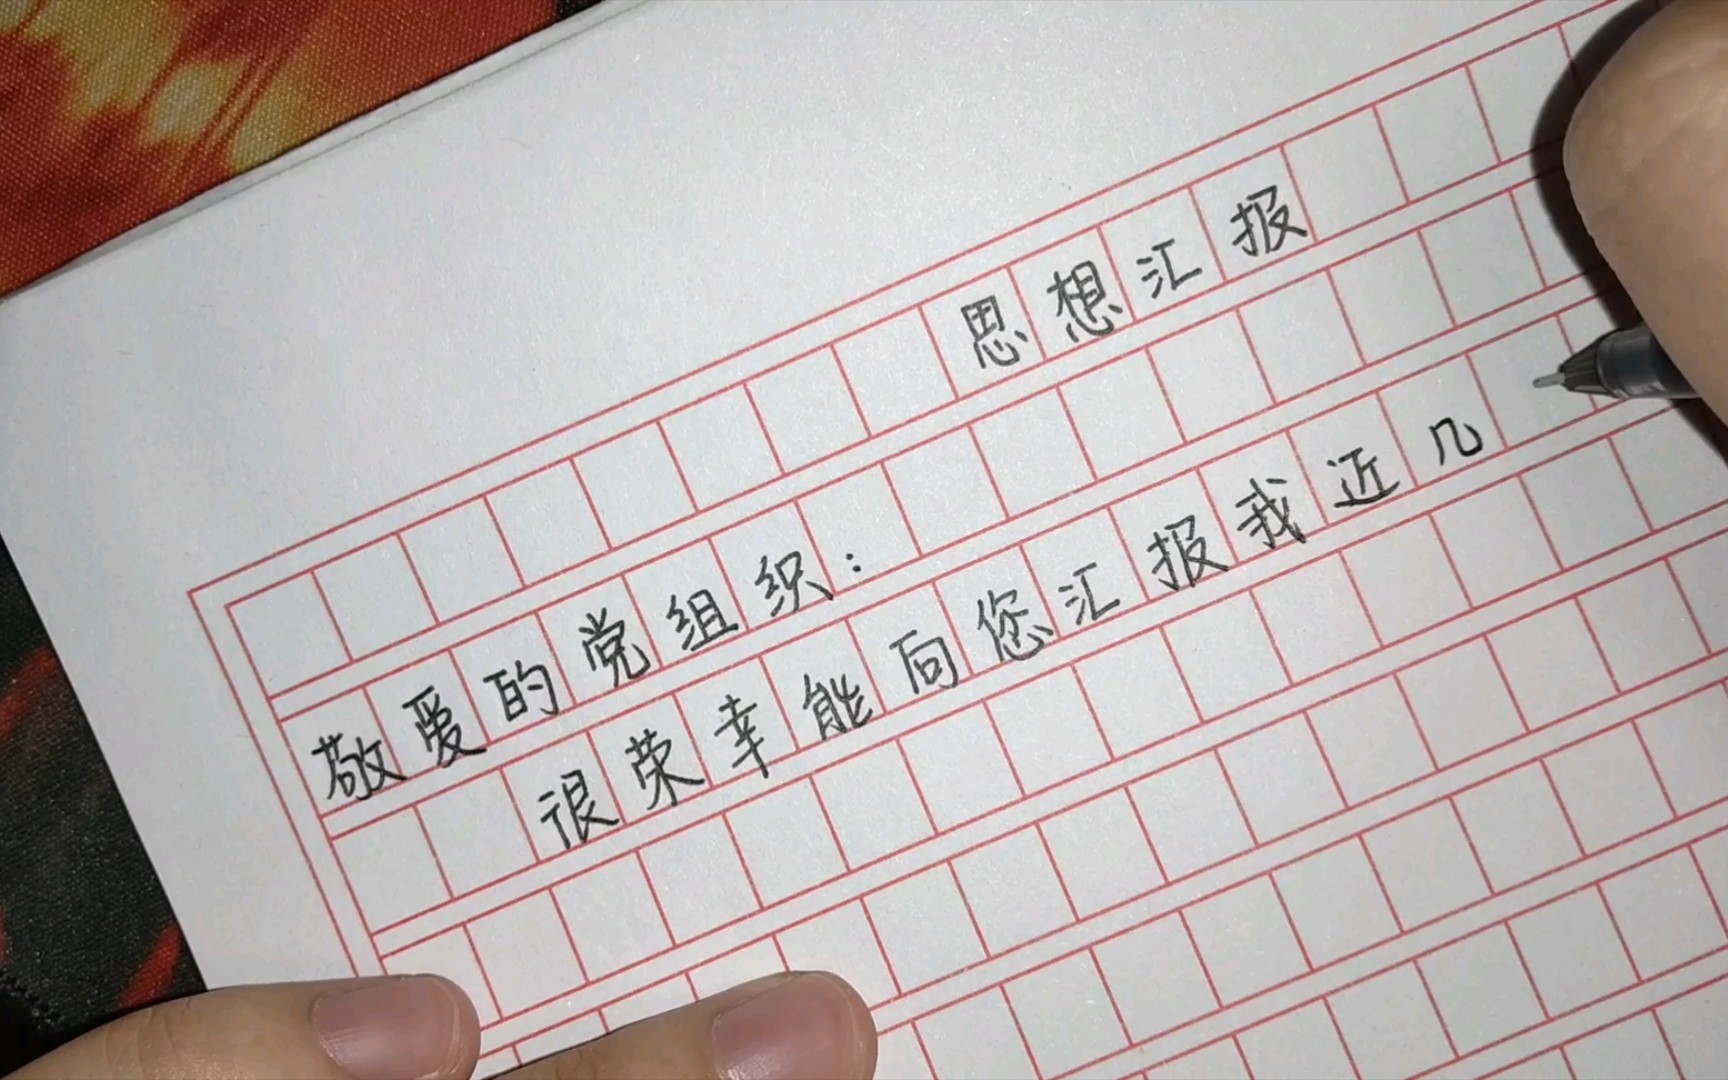 思想汇报
敬爱的党组织：
很荣幸能向您汇报我近几